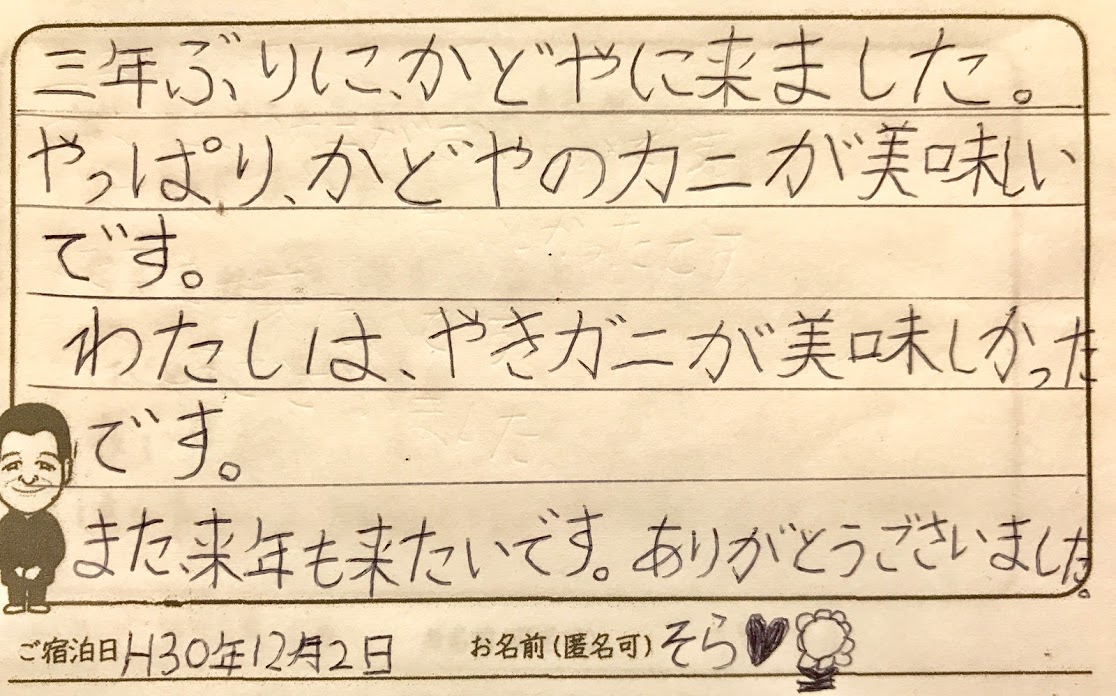 三年ぶりに、かどやに来ました。
やっぱり、かどやのカニが美味しい
です。
わたしは、やきガニが美味しかった
です。
また、来年も来たいです。ありがとうございました。
ご宿泊日 H30年12月2日 お名前(匿名可) そら♥